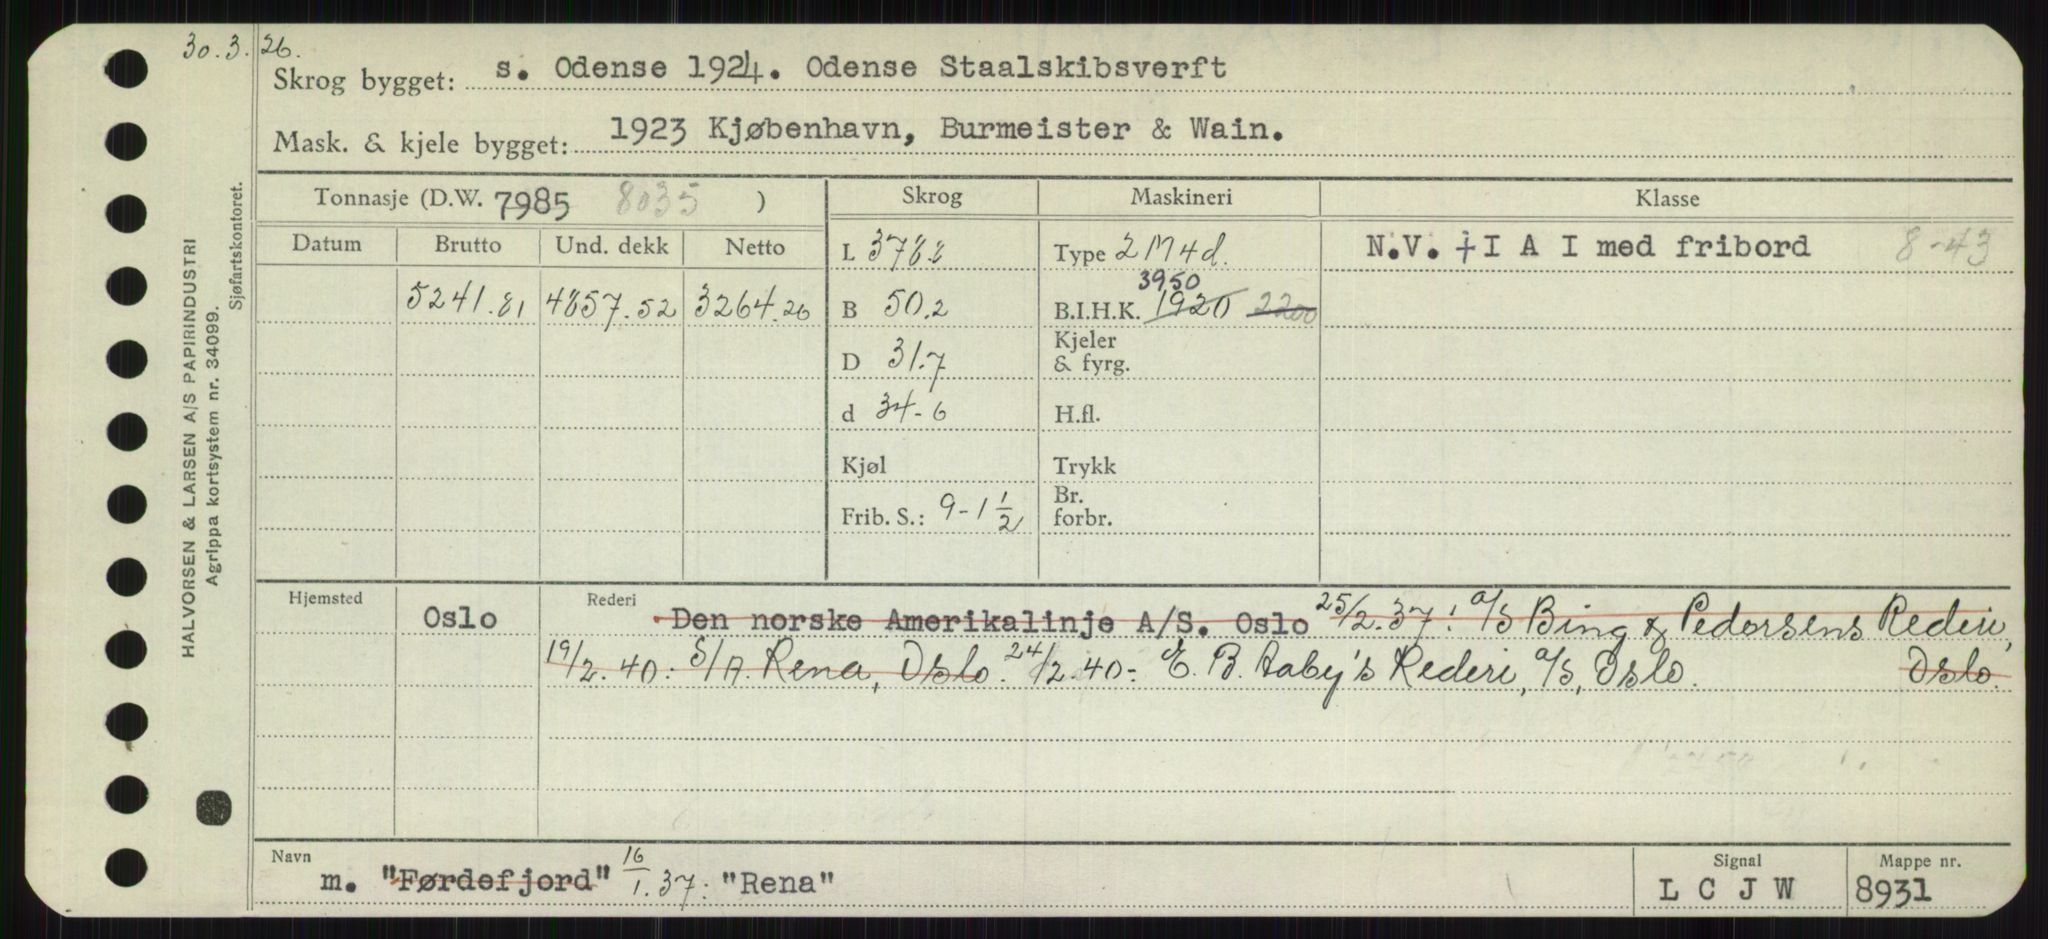 30.3.26.
Skrog bygget: s. Odense 1924. Odense Staalskibsverft
Mask. & kjele bygget: 1923 Kjøbenhavn, Burmeister & Wain.
HALVORSEN & LARSEN A/S PAPIRINDUSTRI
Agrippa kortsystem nr. 34099.
Sjøfartskontoret.
Tonnasje (D.W. 7985 8035 ) Skrog Maskineri Klasse
Datum Brutto Und. dekk Netto
L 378.2 Type 2 M4d. N.V. +I A I med fribord 8-43
3950
5241.81 4857.52 3264.26 B 50.2 B.I.H.K. 1920 2200
D 31.7 Kjeler & fyrg.
d 34-6 H.fl.
Kjøl Trykk
Frib. S.: 9-1 1/2 Br. forbr.
Hjemsted Oslo Rederi Den norske Amerikalinje A/S. Oslo 25/2.37: a/s Bing & Pedersens Rederi,
19/2.40: S/A. Rena, Oslo. 24/2.40- E. B. Aaby's Rederi, a/s, Oslo. Oslo.
Navn Signal Mappe nr.
m. "Førdefjord" 16/1.37: "Rena" L C J W 8931